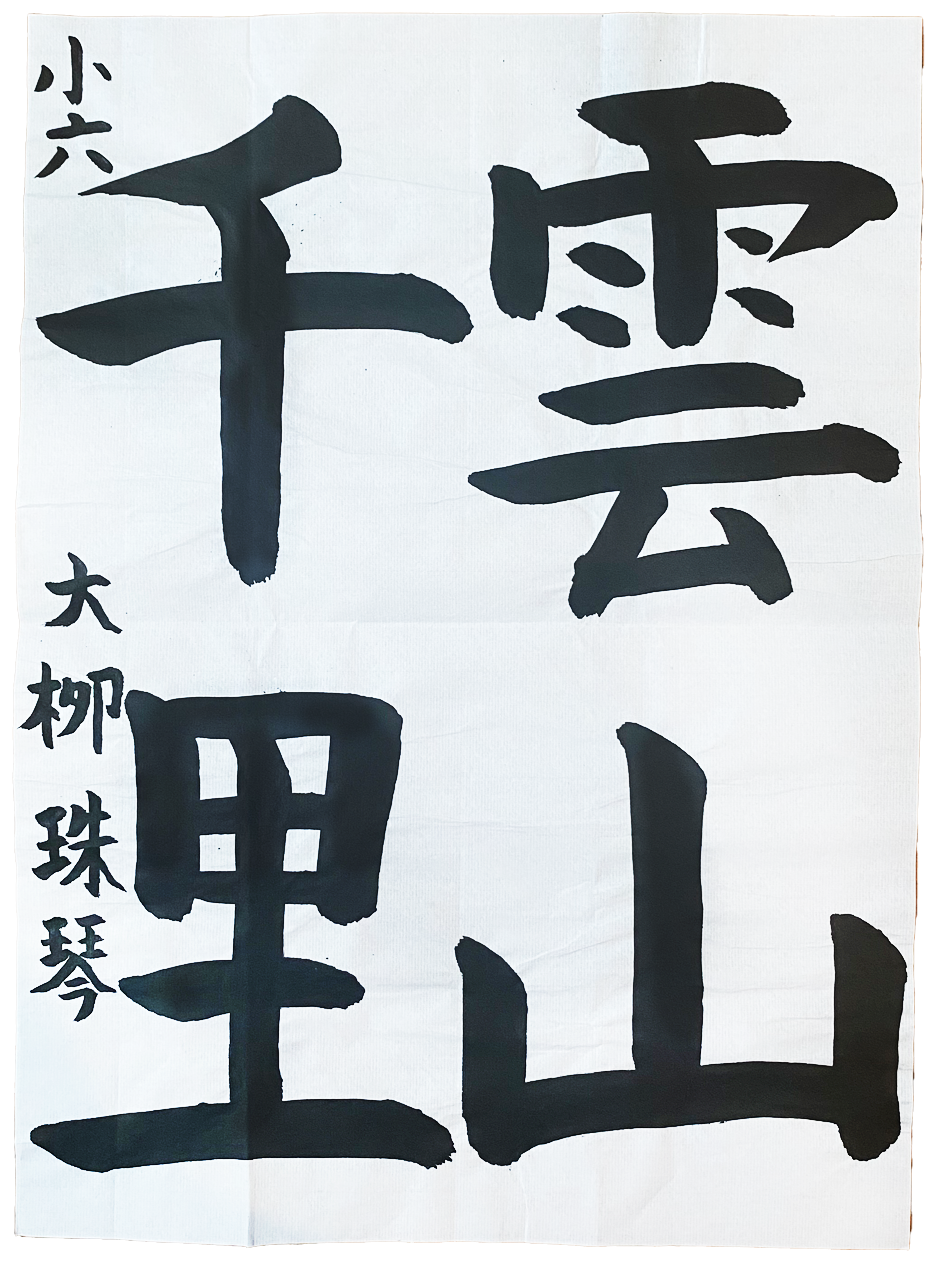 雲山
千里
小六 大柳珠琴